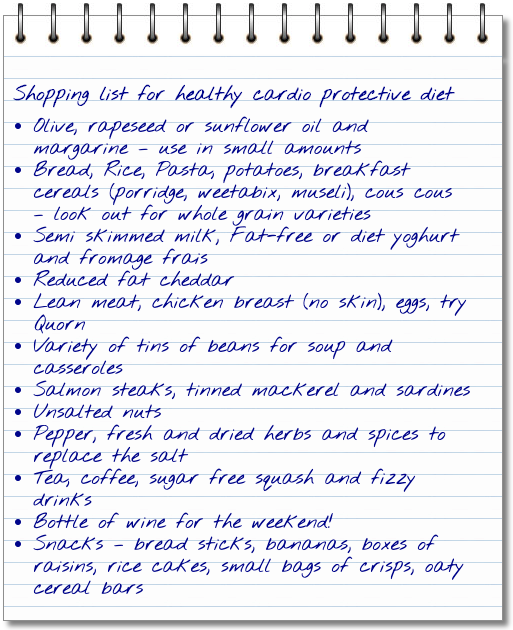 Shopping list for healthy cardio protective diet
• Olive, rapeseed or sunflower oil and
margarine – use in small amounts
• Bread, Rice, Pasta, potatoes, breakfast
cereals (porridge, weetabix, museli), cous cous
– look out for whole grain varieties
• Semi skimmed milk, Fat-free or diet yoghurt
and fromage frais
• Reduced fat cheddar
• Lean meat, chicken breast (no skin), eggs, try
Quorn
• Variety of tins of beans for soup and
casseroles
• Salmon steaks, tinned mackerel and sardines
• Unsalted nuts
• Pepper, fresh and dried herbs and spices to
replace the salt
• Tea, coffee, sugar free squash and fizzy
drinks
• Bottle of wine for the weekend!
• Snacks – bread sticks, bananas, boxes of
raisins, rice cakes, small bags of crisps, oaty
cereal bars